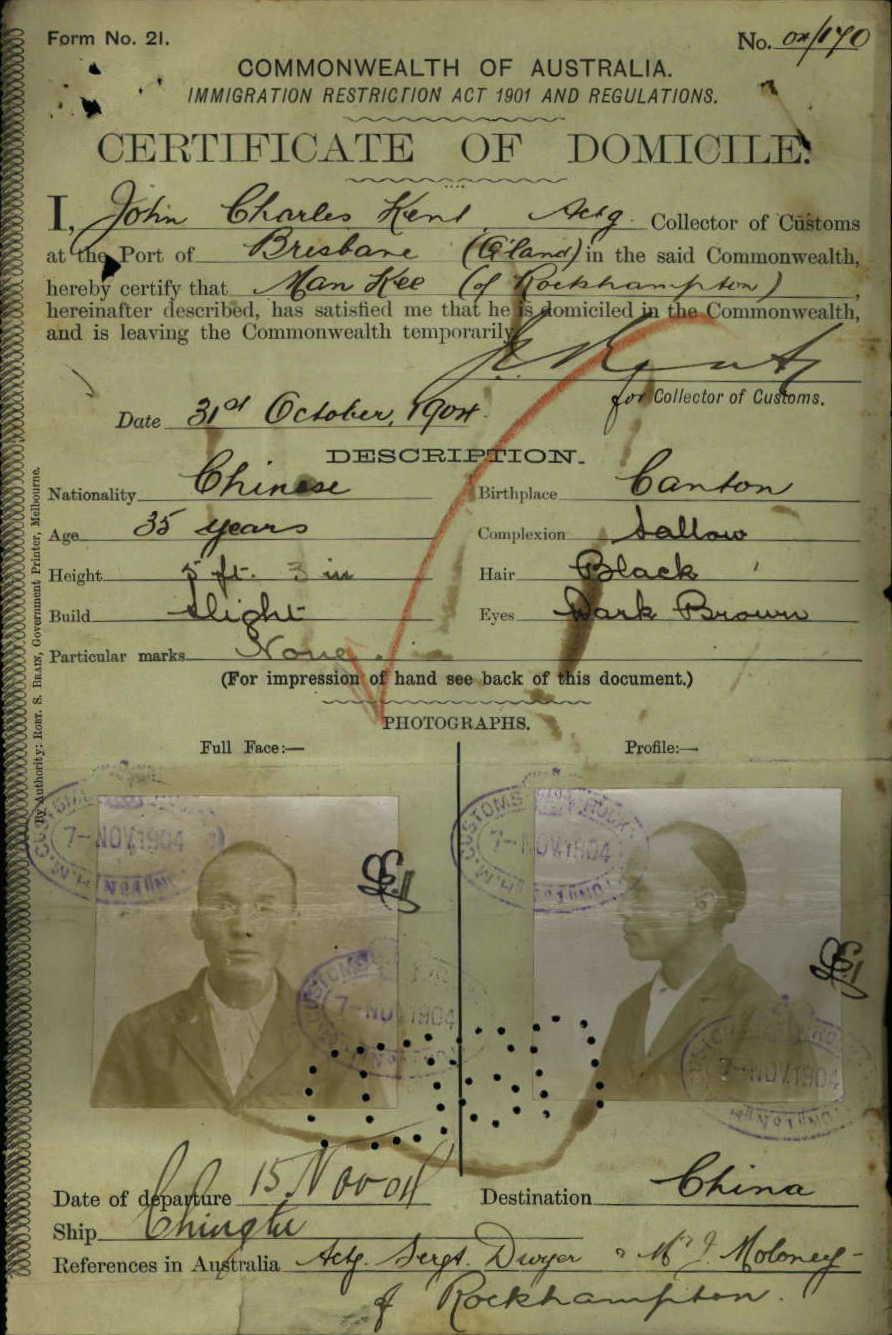 Form No. 21.
No. 04/170
COMMONWEALTH OF AUSTRALIA.
IMMIGRATION RESTRICTION ACT 1901 AND REGULATIONS.
CERTIFICATE OF DOMICILE.
I, John Charles Kent, Actg Collector of Customs
at the Port of Brisbane (Q'land) in the said Commonwealth,
hereby certify that Man Kee (of Rockhampton),
hereinafter described, has satisfied me that he is domiciled in the Commonwealth,
and is leaving the Commonwealth temporarily
for Collector of Customs.
Date 31st October, 1904.
DESCRIPTION.
Nationality Chinese
Birthplace Canton
Age 35 years
Complexion Sallow
Height 5 ft. 3 in
Hair Black
Build Slight
Eyes Dark Brown
Particular marks None.
(For impression of hand see back of this document.)
PHOTOGRAPHS.
Full Face:—
Profile:—
7-NOV.1904
7-NOV.1904
7-NOV.1904
7-NOV.1904
Date of departure 15 Nov 04
Destination China
Ship Chingtu
References in Australia Actg. Sergt. Dwyer & Mr J. Moloney-
of Rockhampton.
By Authority: ROBT. S. BRAIN, Government Printer, Melbourne.